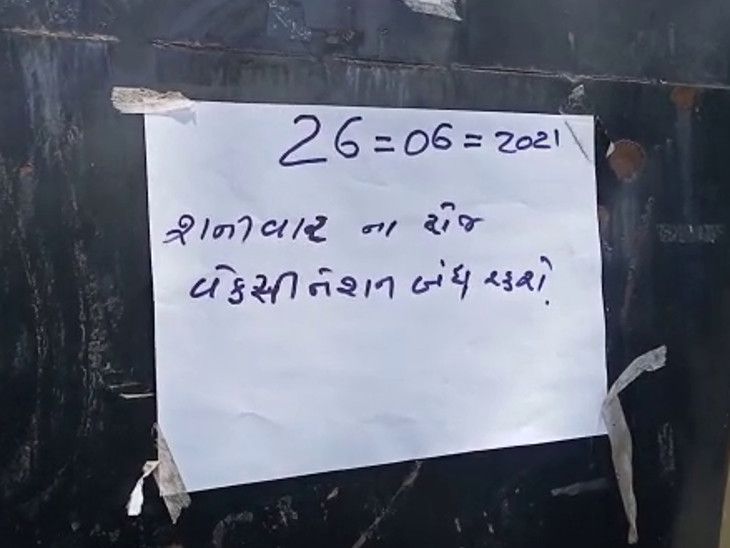 26=06=2021
શનીવાર ના રોજ
વેકસીનેશન બંધ રહેશે.